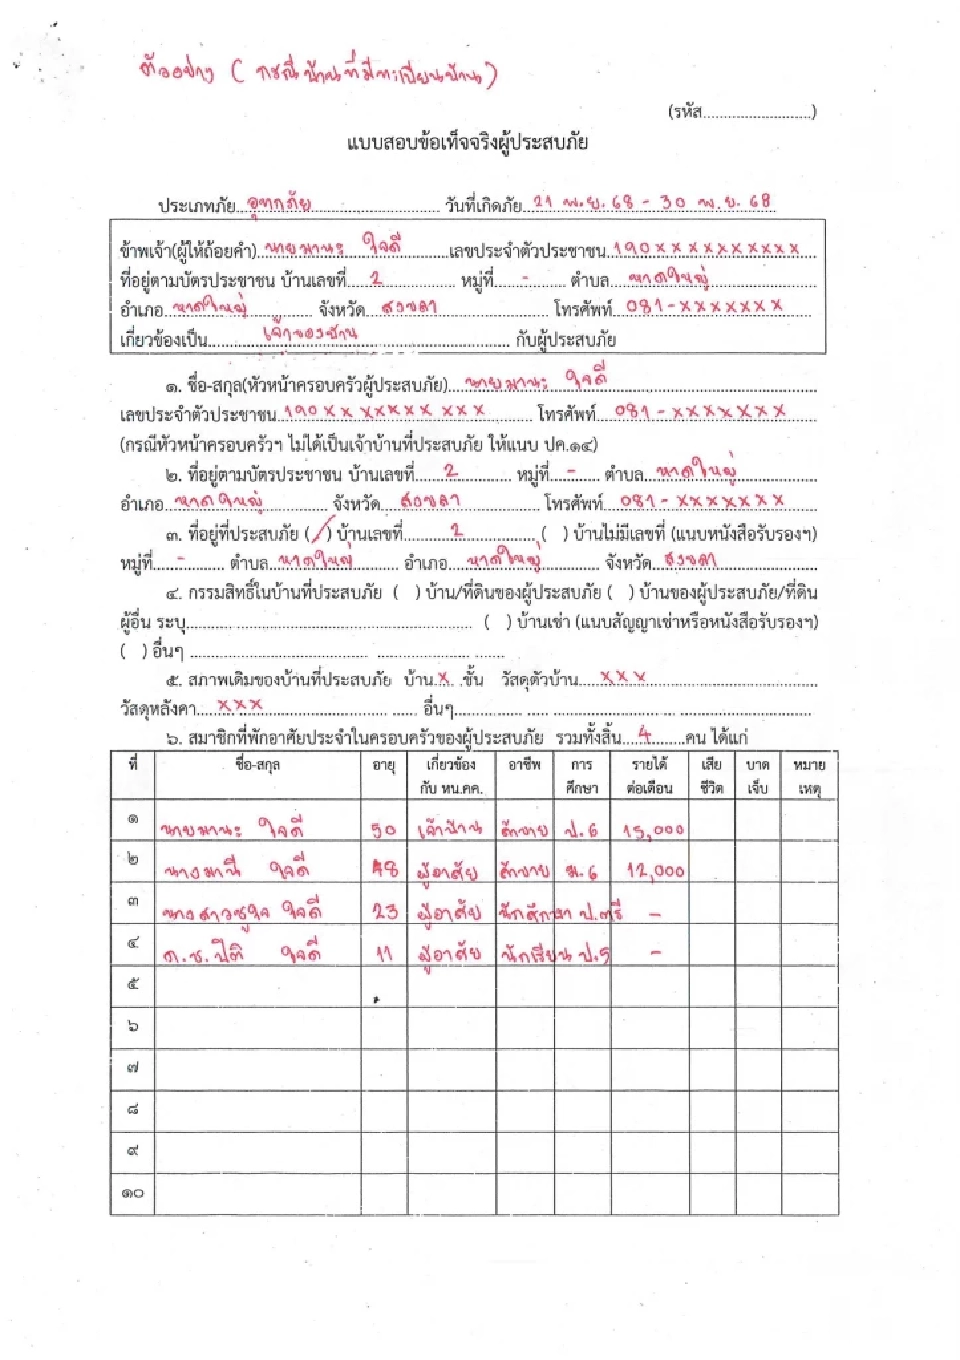 ตัวอย่าง ( กรณีบ้านที่มีทะเบียนบ้าน )
(รหัส...........................)
แบบสอบข้อเท็จจริงผู้ประสบภัย
ประเภทภัย..อุทกภัย................................ วันที่เกิดภัย..21 พ.ย. 68 - 30 พ.ย. 68
ข้าพเจ้า(ผู้ให้ถ้อยคำ)..นายมานะ ใจดี............เลขประจำตัวประชาชน..190xxxxxxxxxx....
ที่อยู่ตามบัตรประชาชน บ้านเลขที่......2.................. หมู่ที่......-......... ตำบล....หาดใหญ่......................
อำเภอ..หาดใหญ่................ จังหวัด....สงขลา............................ โทรศัพท์...081-xxxxxxx.......
เกี่ยวข้องเป็น..............เจ้าของบ้าน...................................... กับผู้ประสบภัย
๑. ชื่อ-สกุล(หัวหน้าครอบครัวผู้ประสบภัย)....นายมานะ ใจดี....................................................
เลขประจำตัวประชาชน..190xx xxxxx xxx............. โทรศัพท์....081-xxxxxxx........
(กรณีหัวหน้าครอบครัวฯ ไม่ได้เป็นเจ้าบ้านที่ประสบภัย ให้แนบ ปค.๑๔)
๒. ที่อยู่ตามบัตรประชาชน บ้านเลขที่.......2............. หมู่ที่....-........ ตำบล...หาดใหญ่....................
อำเภอ...หาดใหญ่.................. จังหวัด...สงขลา...................... โทรศัพท์....081-xxxxxxx........
๓. ที่อยู่ที่ประสบภัย (/) บ้านเลขที่............2.................. ( ) บ้านไม่มีเลขที่ (แนบหนังสือรับรองฯ)
หมู่ที่.....-........... ตำบล...หาดใหญ่........... อำเภอ.....หาดใหญ่.............. จังหวัด...สงขลา.........................
๔. กรรมสิทธิ์ในบ้านที่ประสบภัย ( ) บ้าน/ที่ดินของผู้ประสบภัย ( ) บ้านของผู้ประสบภัย/ที่ดิน
ผู้อื่น ระบุ...................................................................... ( ) บ้านเช่า (แนบสัญญาเช่าหรือหนังสือรับรองฯ)
( ) อื่นๆ ............................................ ....................... .......
๕. สภาพเดิมของบ้านที่ประสบภัย บ้าน.x...ชั้น วัสดุตัวบ้าน.....xxx..........................................
วัสดุหลังคา.....xxx.................................... อื่นๆ................................................................................
๖. สมาชิกที่พักอาศัยประจำในครอบครัวของผู้ประสบภัย รวมทั้งสิ้น....4.........คน ได้แก่
ที่ ชื่อ-สกุล อายุ เกี่ยวข้อง อาชีพ การ รายได้ เสีย บาด หมาย
กับ หน.คค. ศึกษา ต่อเดือน ชีวิต เจ็บ เหตุ
๑ นายมานะ ใจดี 50 เจ้าบ้าน ค้าขาย ป.6 15,000
๒ นางมานี ใจดี 48 ผู้อาศัย ค้าขาย ม.6 12,000
๓ นางสาวชูใจ ใจดี 23 ผู้อาศัย นักศึกษา ป.ตรี -
๔ ด.ช.ปิติ ใจดี 11 ผู้อาศัย นักเรียน ป.5 -
๕
๖
๗
๘
๙
๑๐